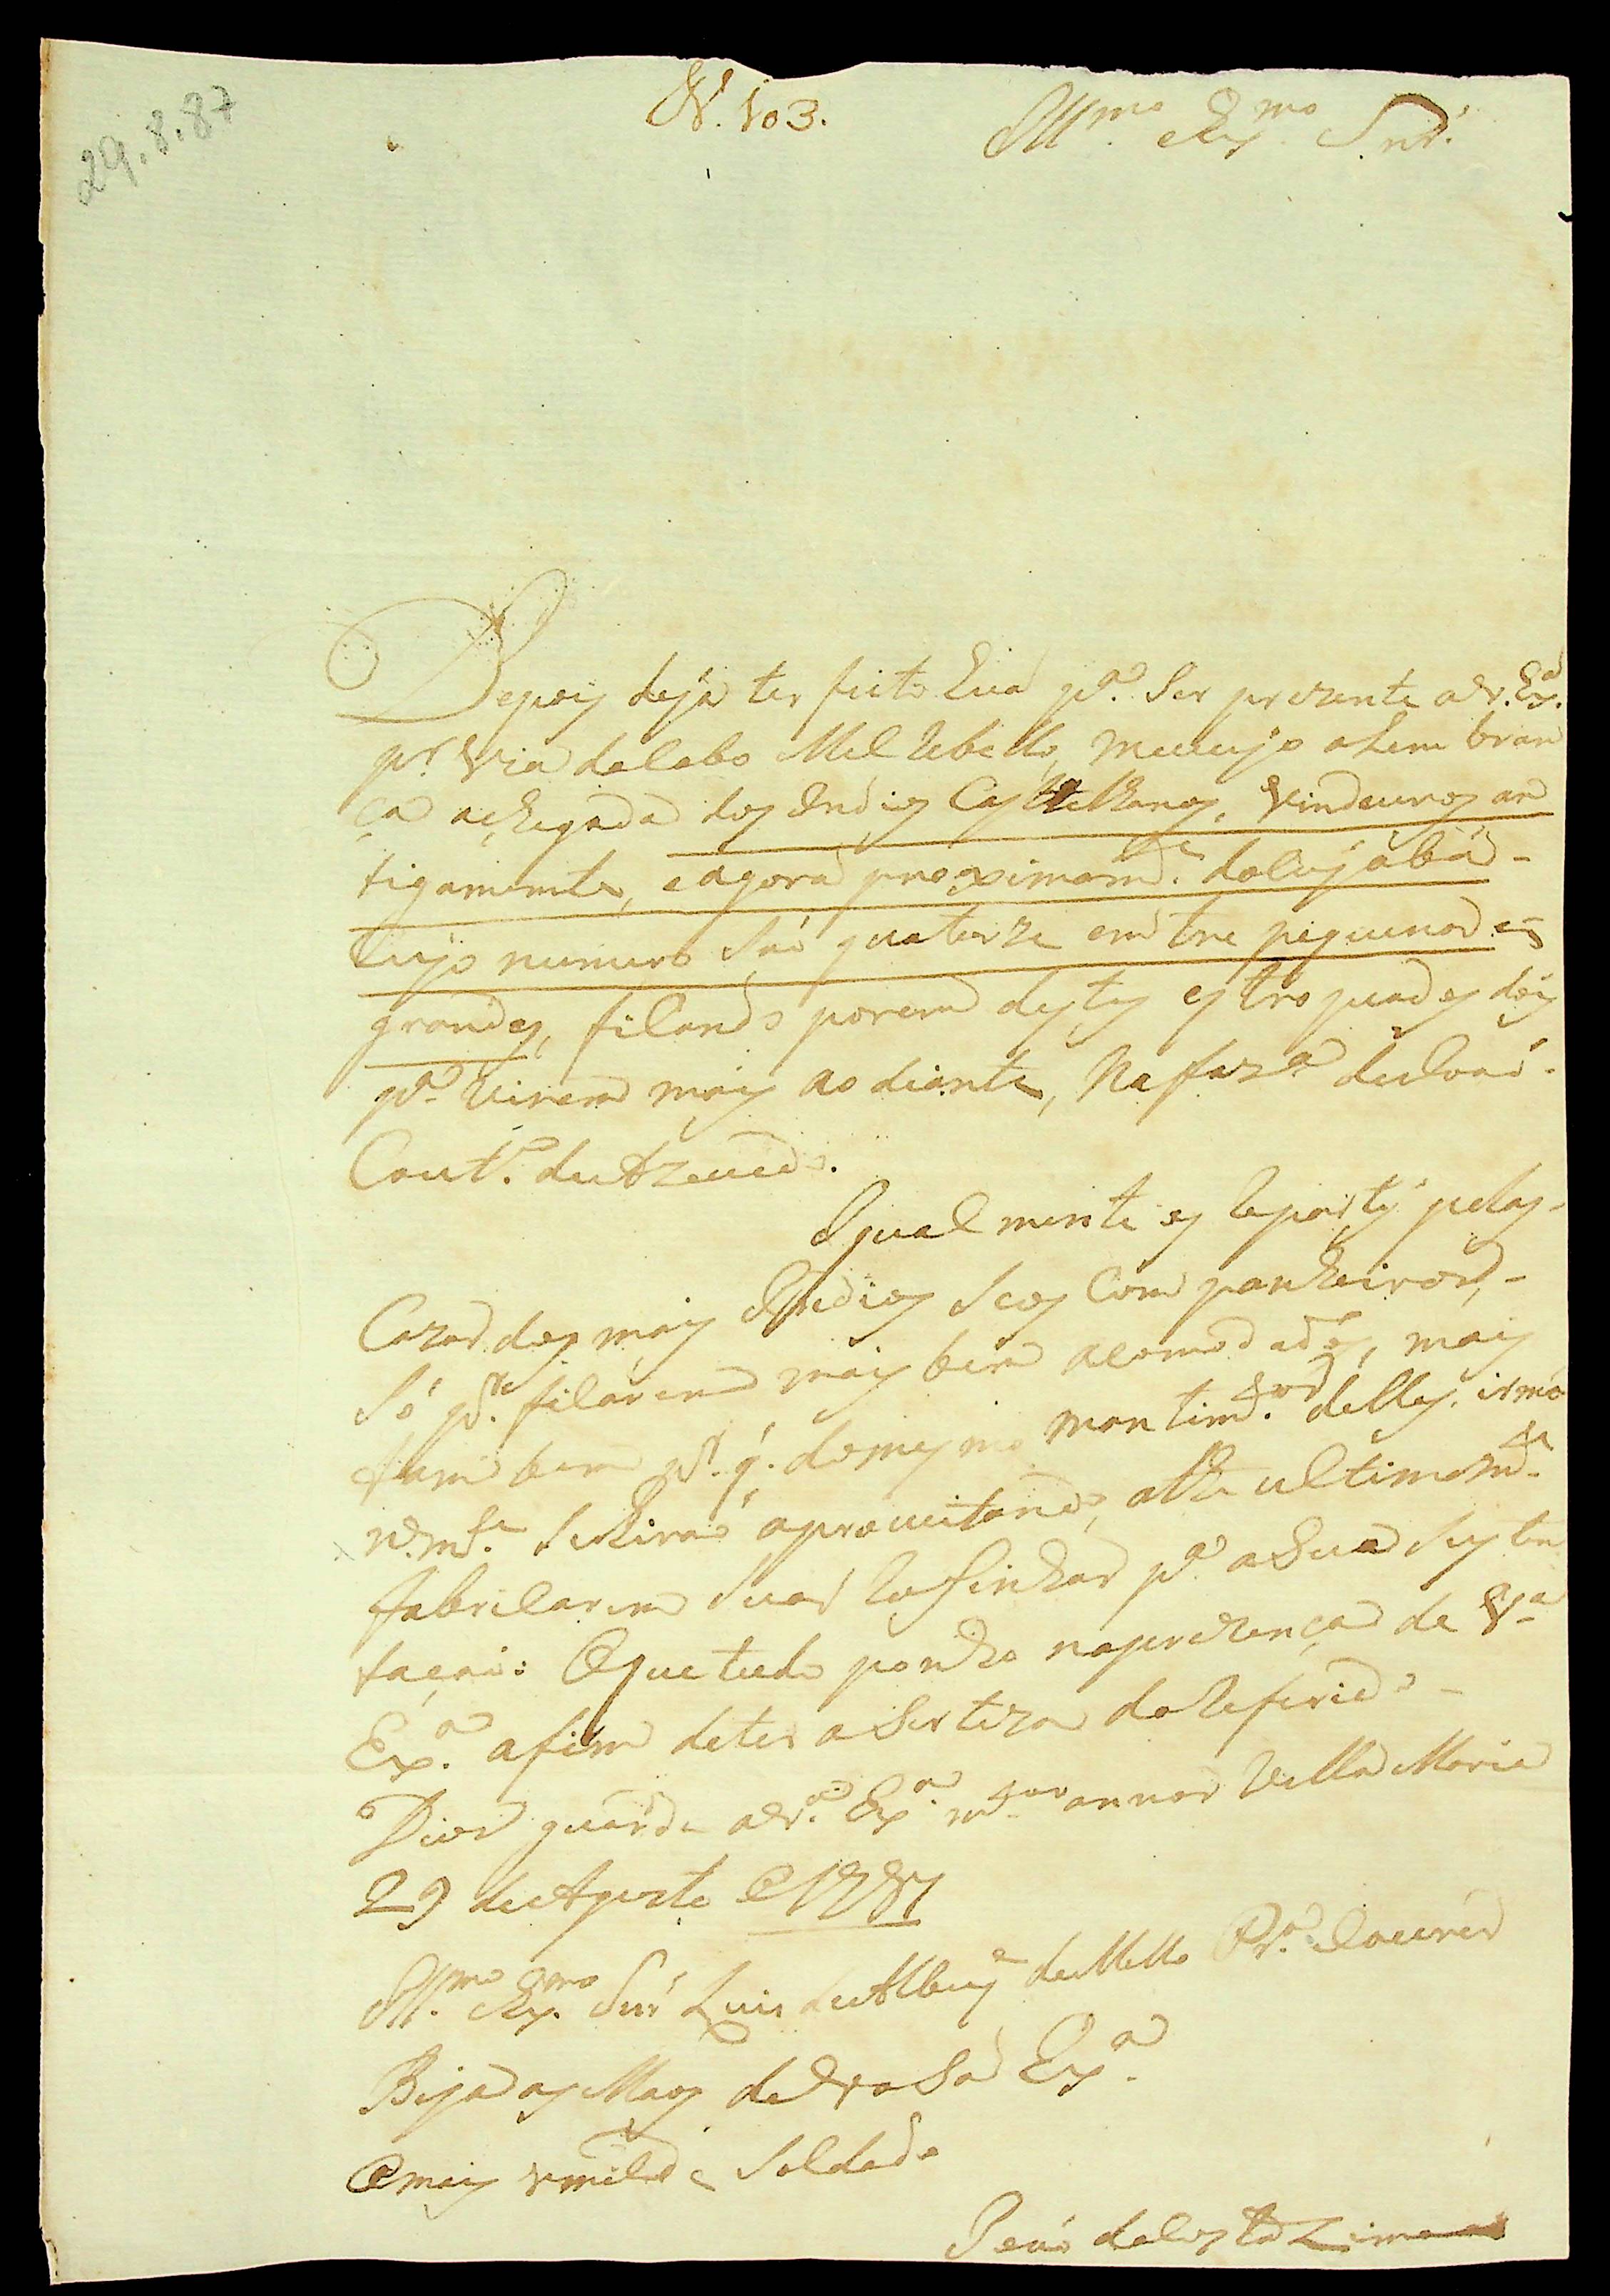 29.8.87
N. 103.
Ill.mo e Ex.mo Snr.
Depoiz deja ter feito hua p.a Ser prezente a V. Ex.a
p.r via do Cabo Mel Rebello, me veyo a Lembran
ça achegada doz Indioz Castelhanoz, vindouroz an
tigamente, e agora proximam.te do Cujabá -
Cujo numero Saõ quatorze emtre pequenos e
grandez, ficando porem deztez eztropeadoz doiz
p.a virem maiz ao diante, Na faz.a de Joaõ
Cout.o de Azevedo.
Igual mente oz Reparty pelaz -
Cazas doz maiz Indioz Seoz Companheiros, -
Só p.a ficarem maiz bem acomodadoz, maiz
tambem p.r q. do mezmo mantim.to delles, irma
n.m.te Se hiraõ aproveitando, athe ultimam.te
fabricarem Suas Rossinhas p.a a Sua Suzten
taçaõ: Oque tudo ponho na prezença de V.a
Ex.a afim de ter a Serteza do Referido -
Dios guarde a V.a Ex.a m.tos annos Villa Maria
29 de Agosto de 1787
Ill.mo e Ex.mo Snr Luis de Albuq.e de Mello Pr.a Caceres
Beja az Maoz de Vosa Ex.a
O maiz umilde Soldado
Joaõ da Costa Lima